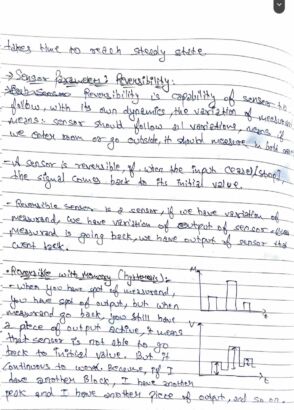 takes time to reach steady state.
→ Sensor Parameters: Reversibility:
Reversibility is capability of sensor to
follow, with its own dynamics, the variation of measurand
means: sensor should follow all variations, means if
we enter room or go outside, it should measure in both
- A sensor is reversible, if when the input ceases/stops,
the signal comes back to its initial value.
- Reversible sensor is a sensor, if we have variation of
measurand, we have variation of output of sensor
measurand is going back, we have output of sensor
went back.
- Reversible with Memory (hysteresis):-
- when you have spot of measurand,
you have spot of output, but when
measurand go back, you still have
a piece of output active, it means
that sensor is not able to go
back to initial value. But it
continuous to work. Because, if I
have another Block, I have another
peak and I have another piece of output, and so on.
M
t
V
t